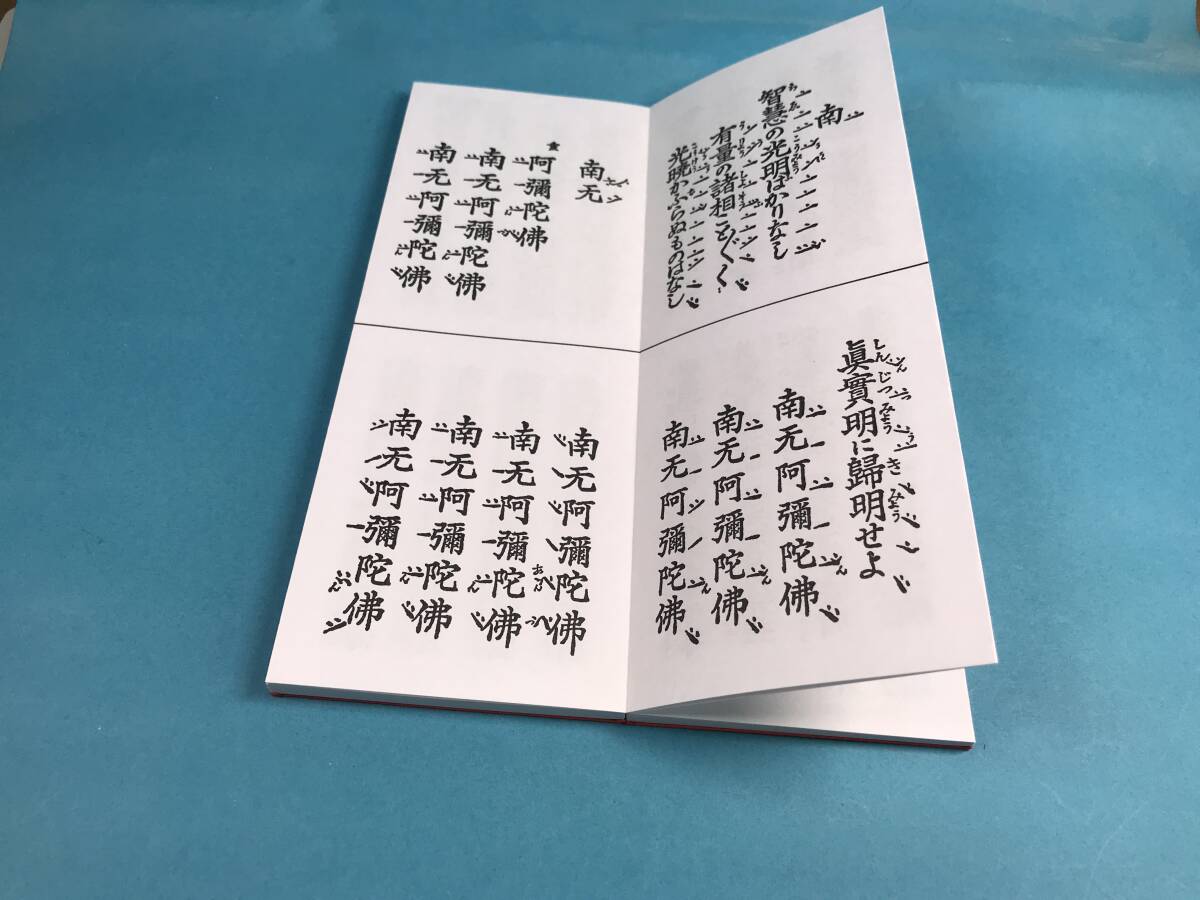 南
智慧の光明はかりなし
有量の諸相ことぐ〱
光暁かふらぬものはなし
眞實明に歸明せよ
南无阿彌陀佛
南无阿彌陀佛
南无阿彌陀佛
南无
★
阿彌陀佛
南无阿彌陀佛
南无阿彌陀佛
南无阿彌陀佛
南无阿彌陀佛
南无阿彌陀佛
南无阿彌陀佛